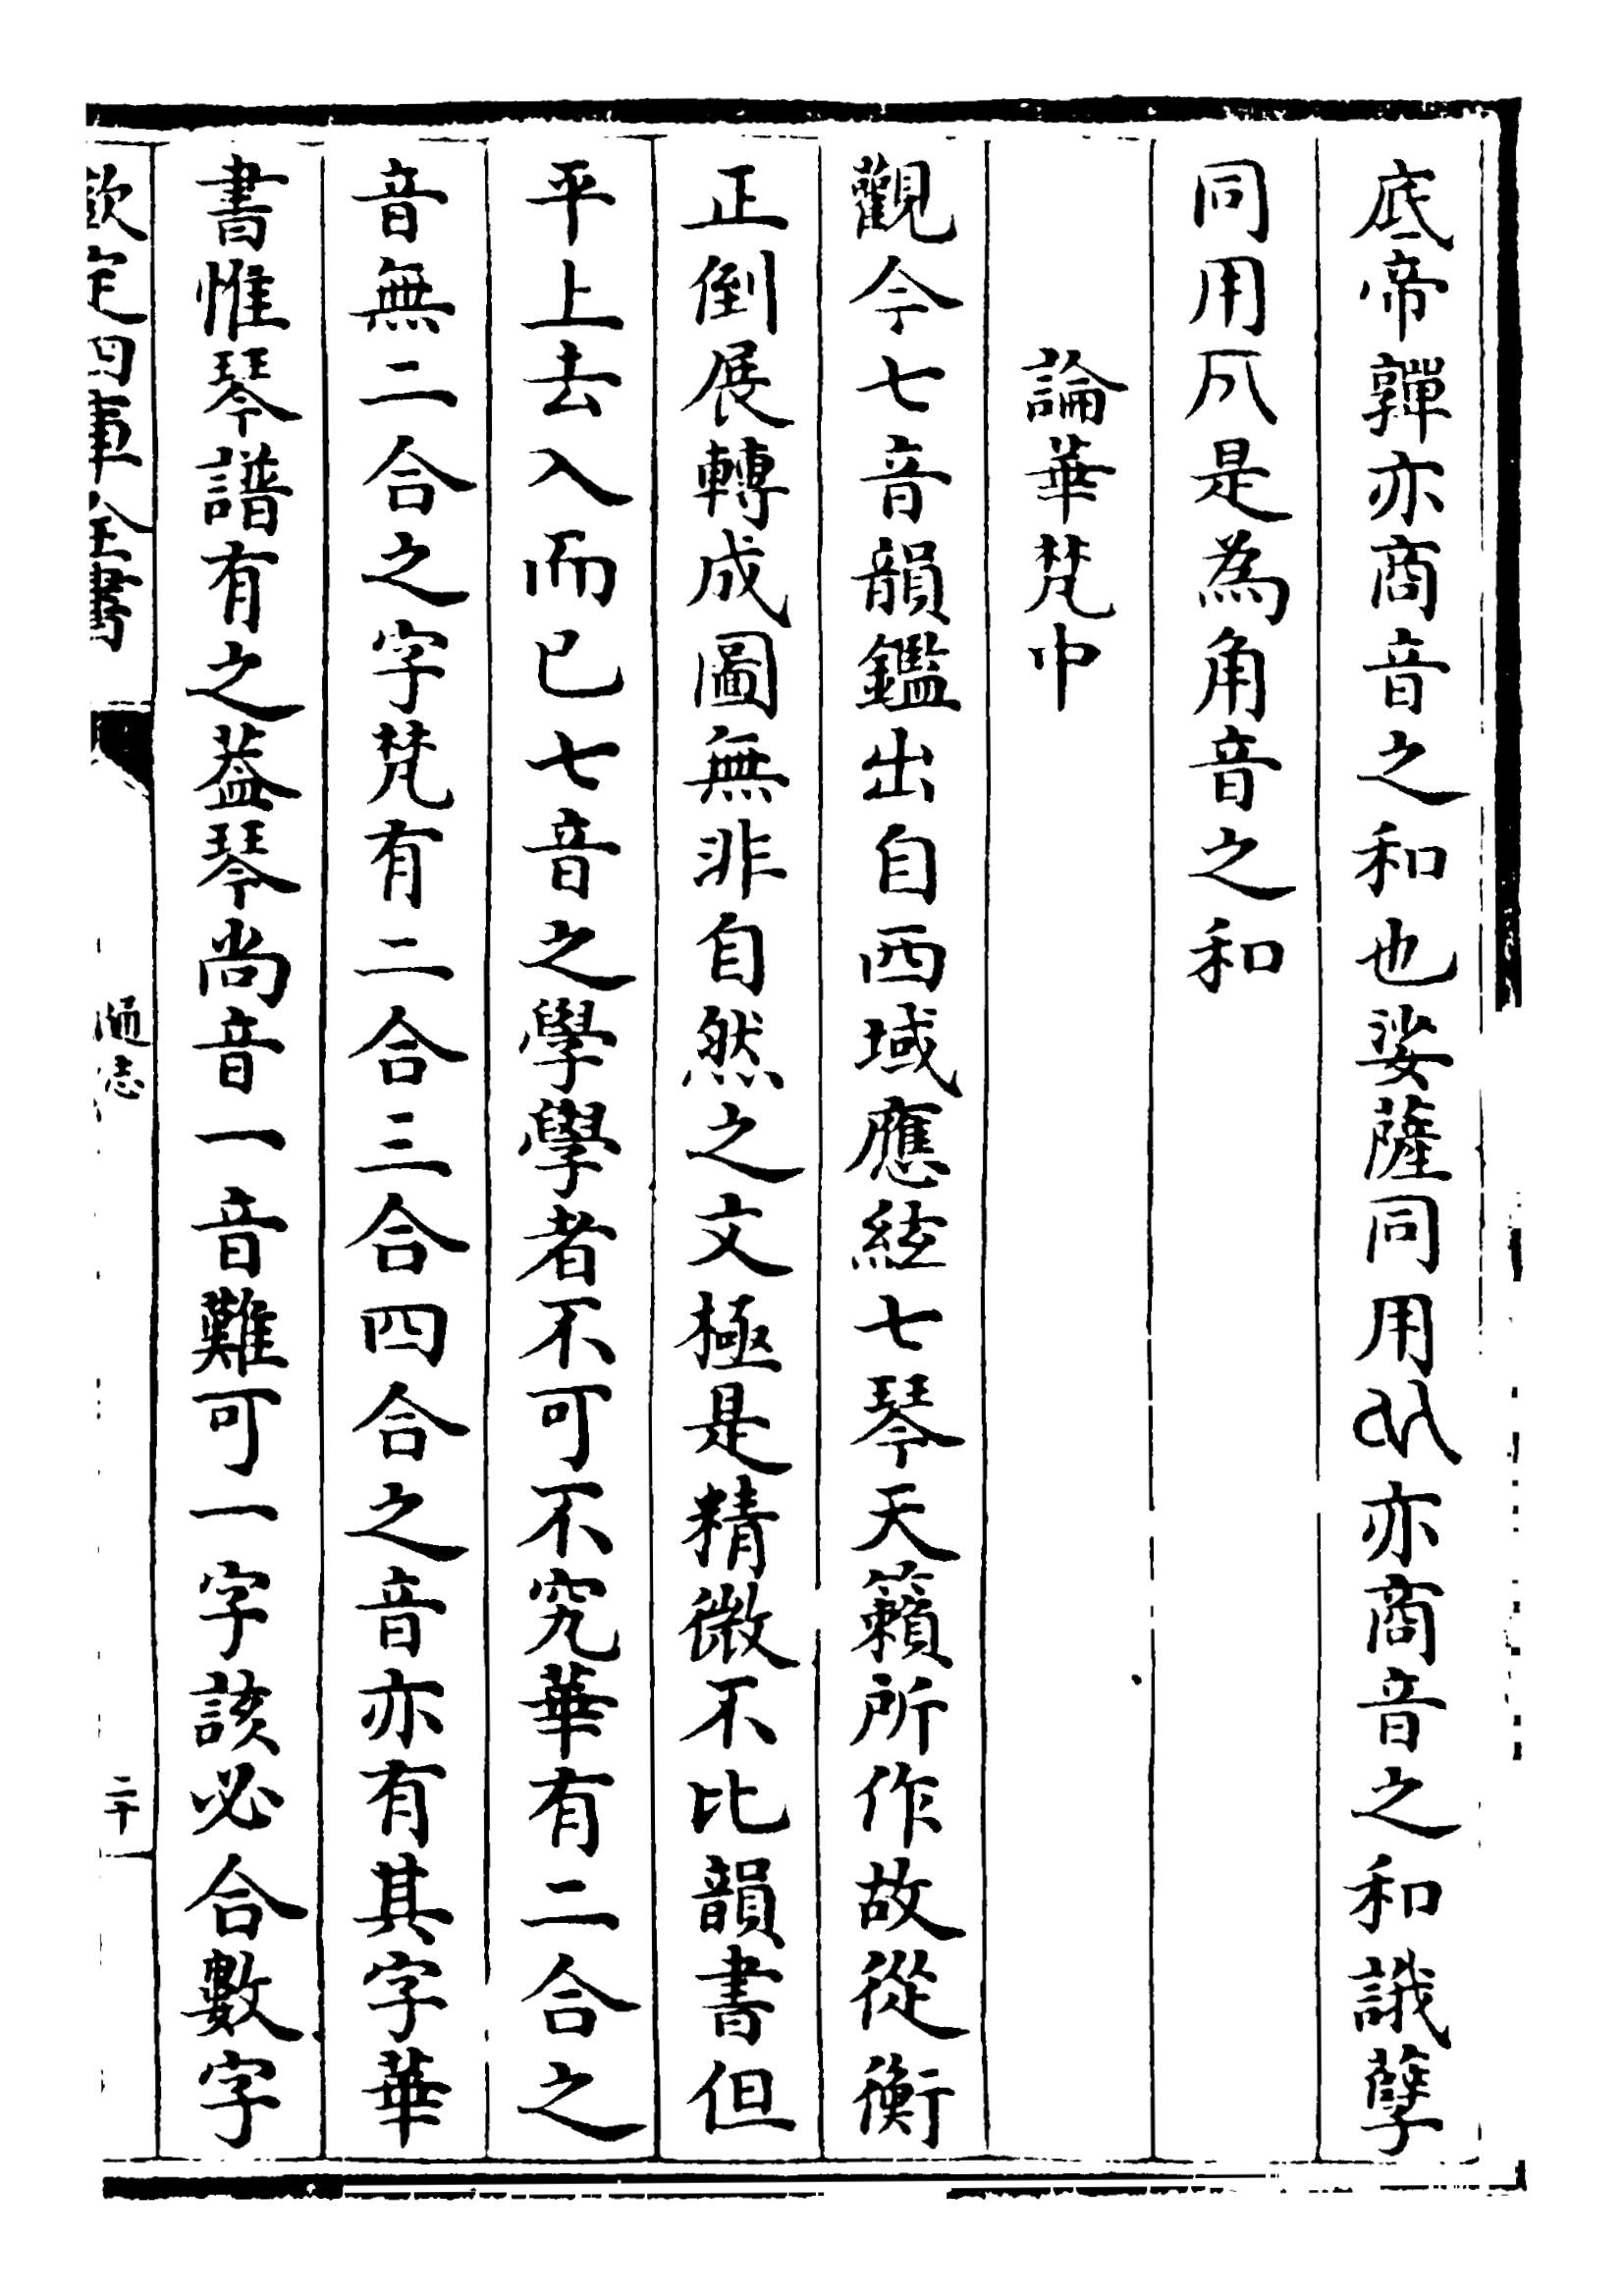 底帝亸亦商音之和也娑薩同用亦商音之和誐孽
同用是為角音之和
論華梵中
觀今七音韻鑑出自西域應絃七琴天籟所作故從衡
正倒展轉成圖無非自然之文極是精微不比韻書但
平上去入而已七音之學學者不可不究華有二合之
音無二合之字梵有二合三合四合之音亦有其字華
書惟琴譜有之葢琴尚音一音難可一字該必合數字
欽定四庫全書
通志
二十